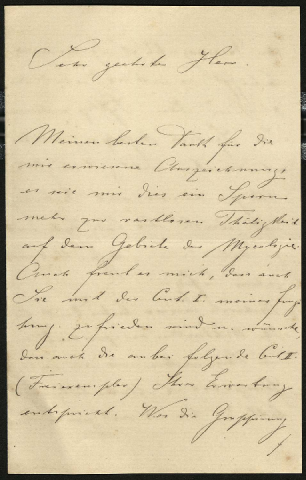 Sehr geehrter Herr.
Meinen besten Dank für die
mir erwiesene Auszeichnung,
es sei mir dies ein Sporn
mehr zur rastlosen Thätigkeit
auf dem Gebiete der Mycologie.
Auch freut es mich, dass auch
Sie mit der Cent. I. meiner
zufrieden sind u. wünsche,
dass auch die anbei folgende Cent. II.
(Freiexemplar) Ihrer Erwartung
entspricht. Was die